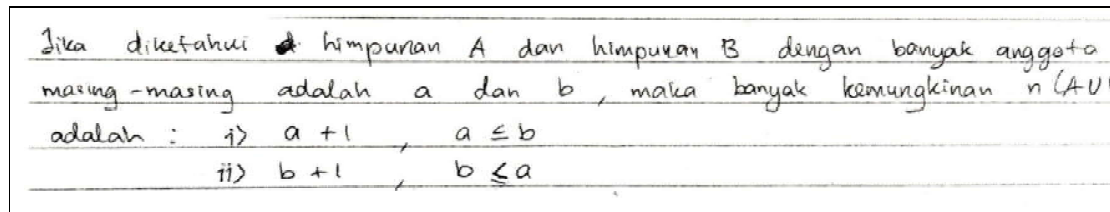 Jika diketahui himpunan A dan himpunan B dengan banyak anggota
masing-masing adalah a dan b, maka banyak kemungkinan n(AU
adalah : i) a + 1 , a ≤ b
ii) b + 1 , b ≤ a